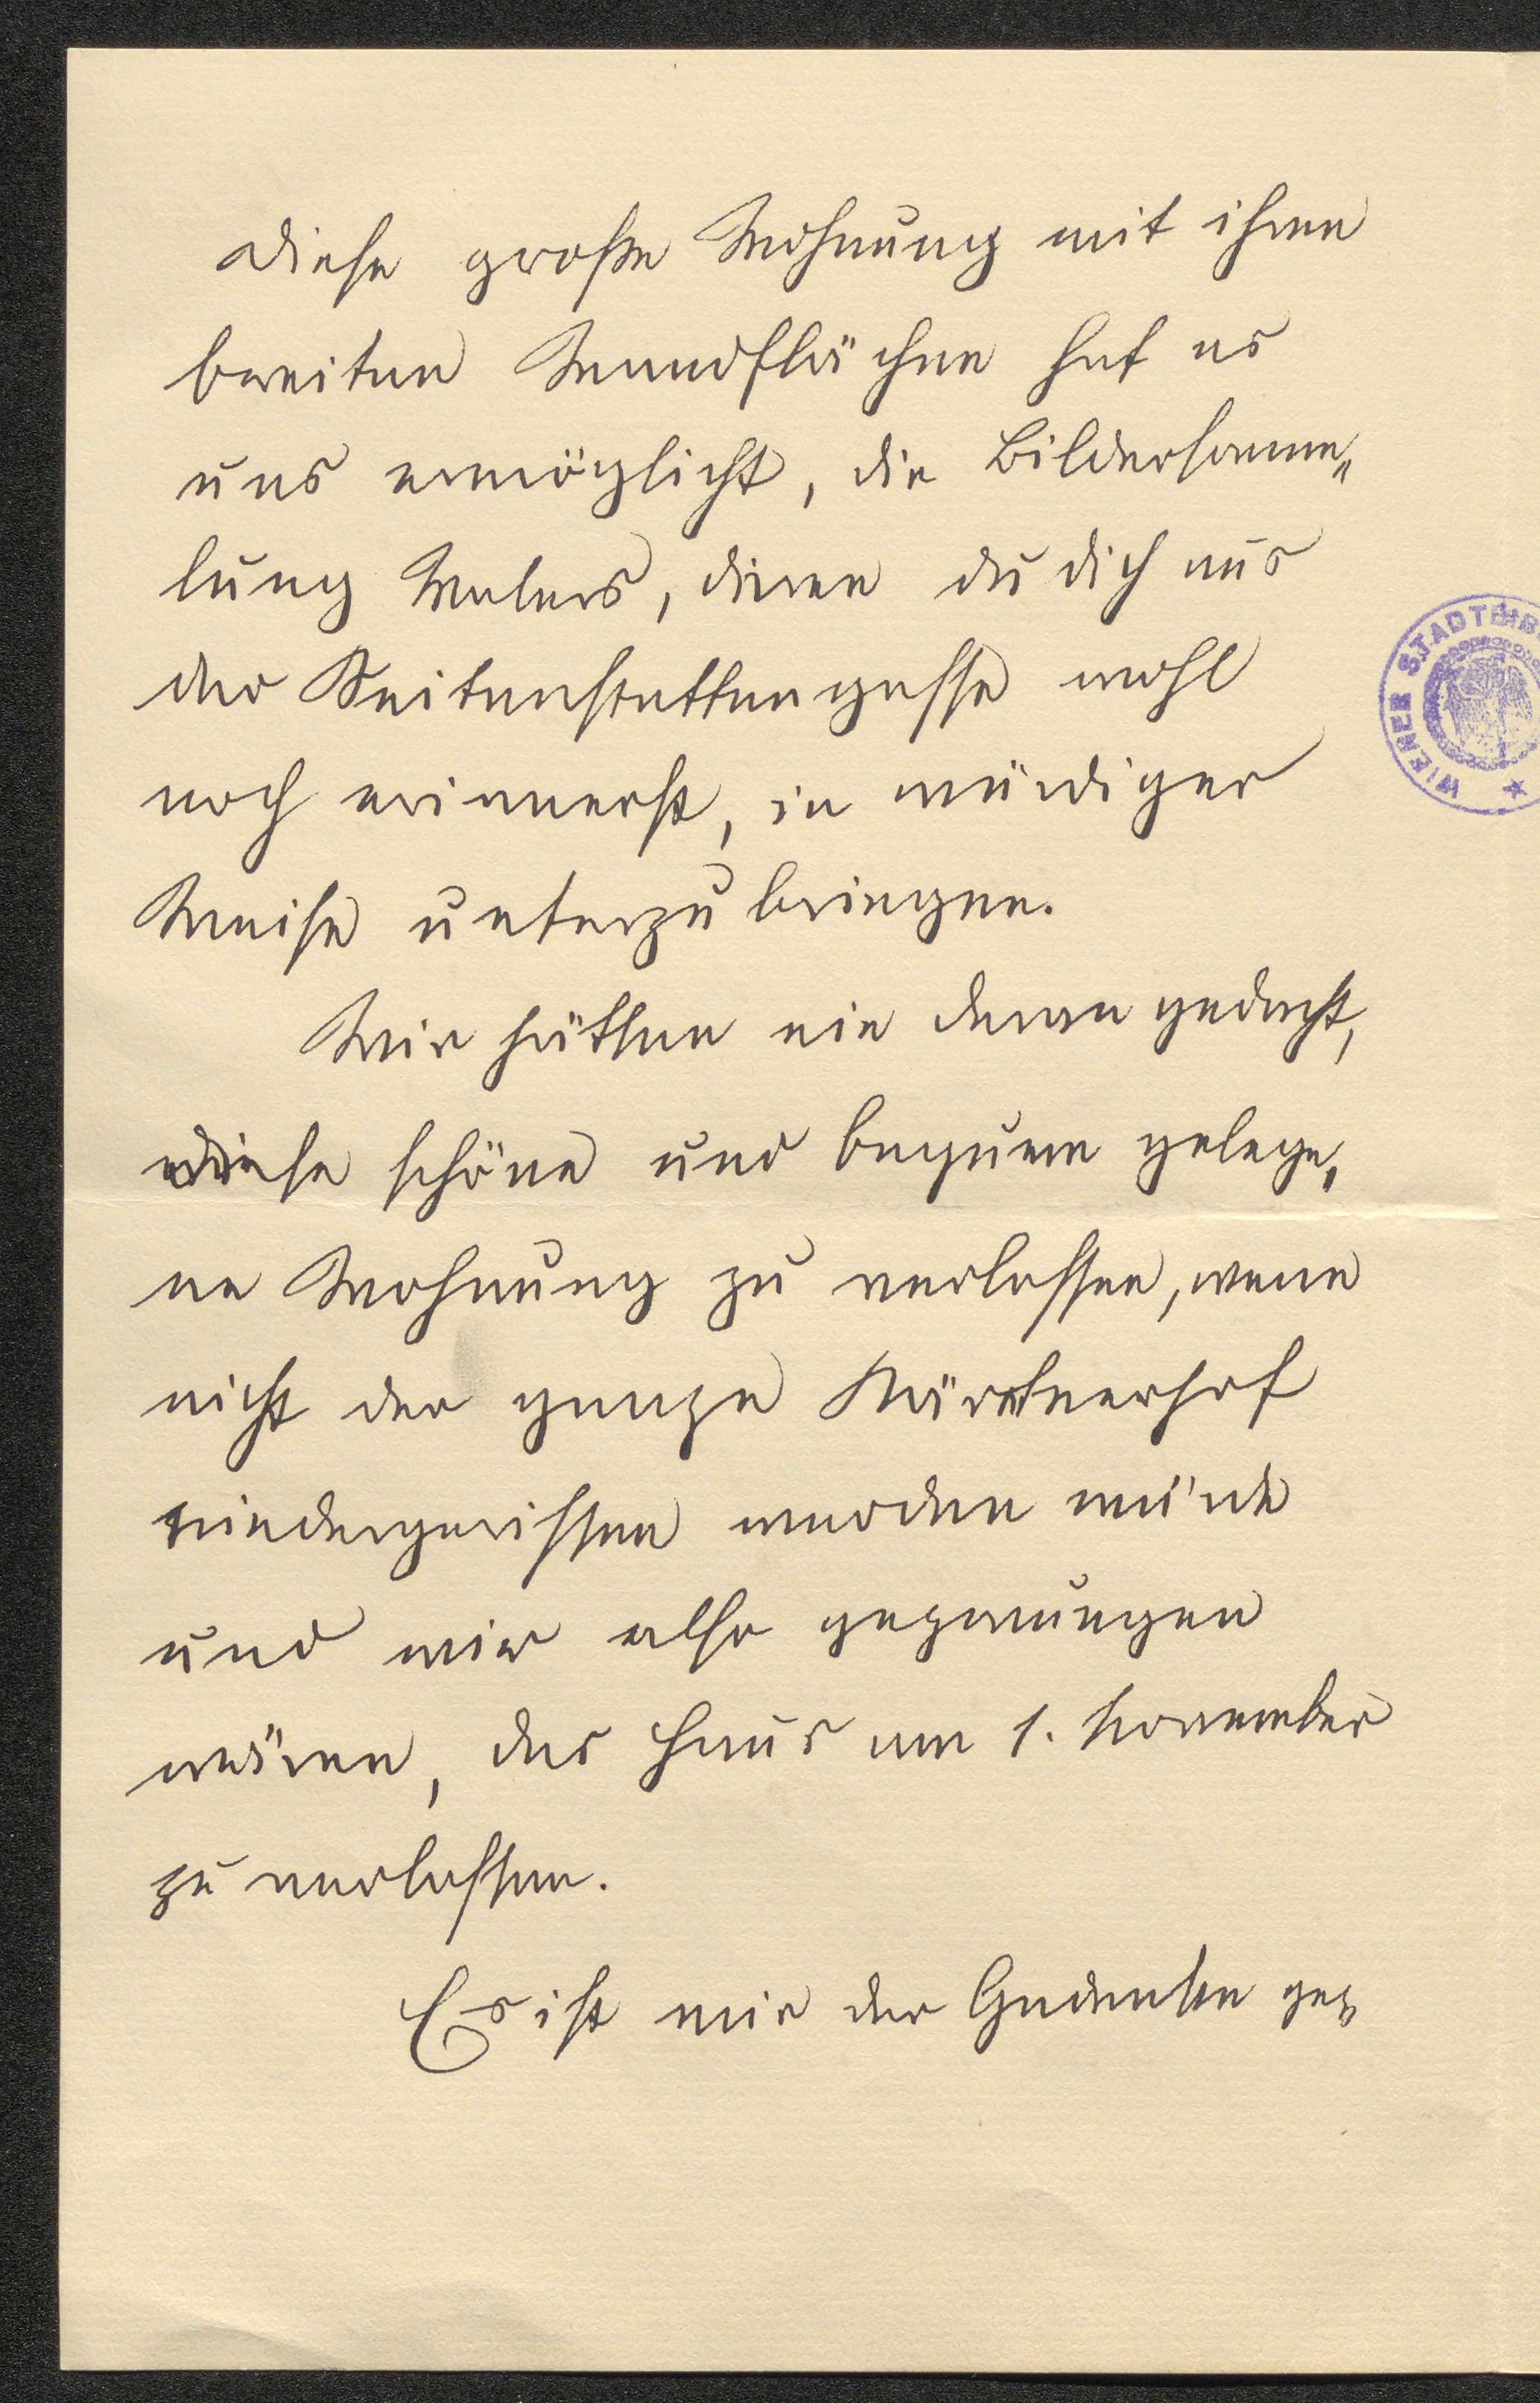 Diese große Wohnung mit ihren
breiten Wandflächen hat es
uns ermöglicht, die Bildersamm„
lung Vaters, deren du dich aus
der Seitenstettengasse wohl
noch erinnerst, in würdiger
Weise unterzubringen.
Wir hätten nie daran gedacht,
diese schöne und bequem gelege„
ne Wohnung zu verlassen, wenn
nicht der ganze Kärntnerhof
niedergerissen werden würde
und wir also gezwungen
wären, das Haus am 1. November
zu verlassen.
Es ist mir der Gedanke ge„
WIENER STADTBIB